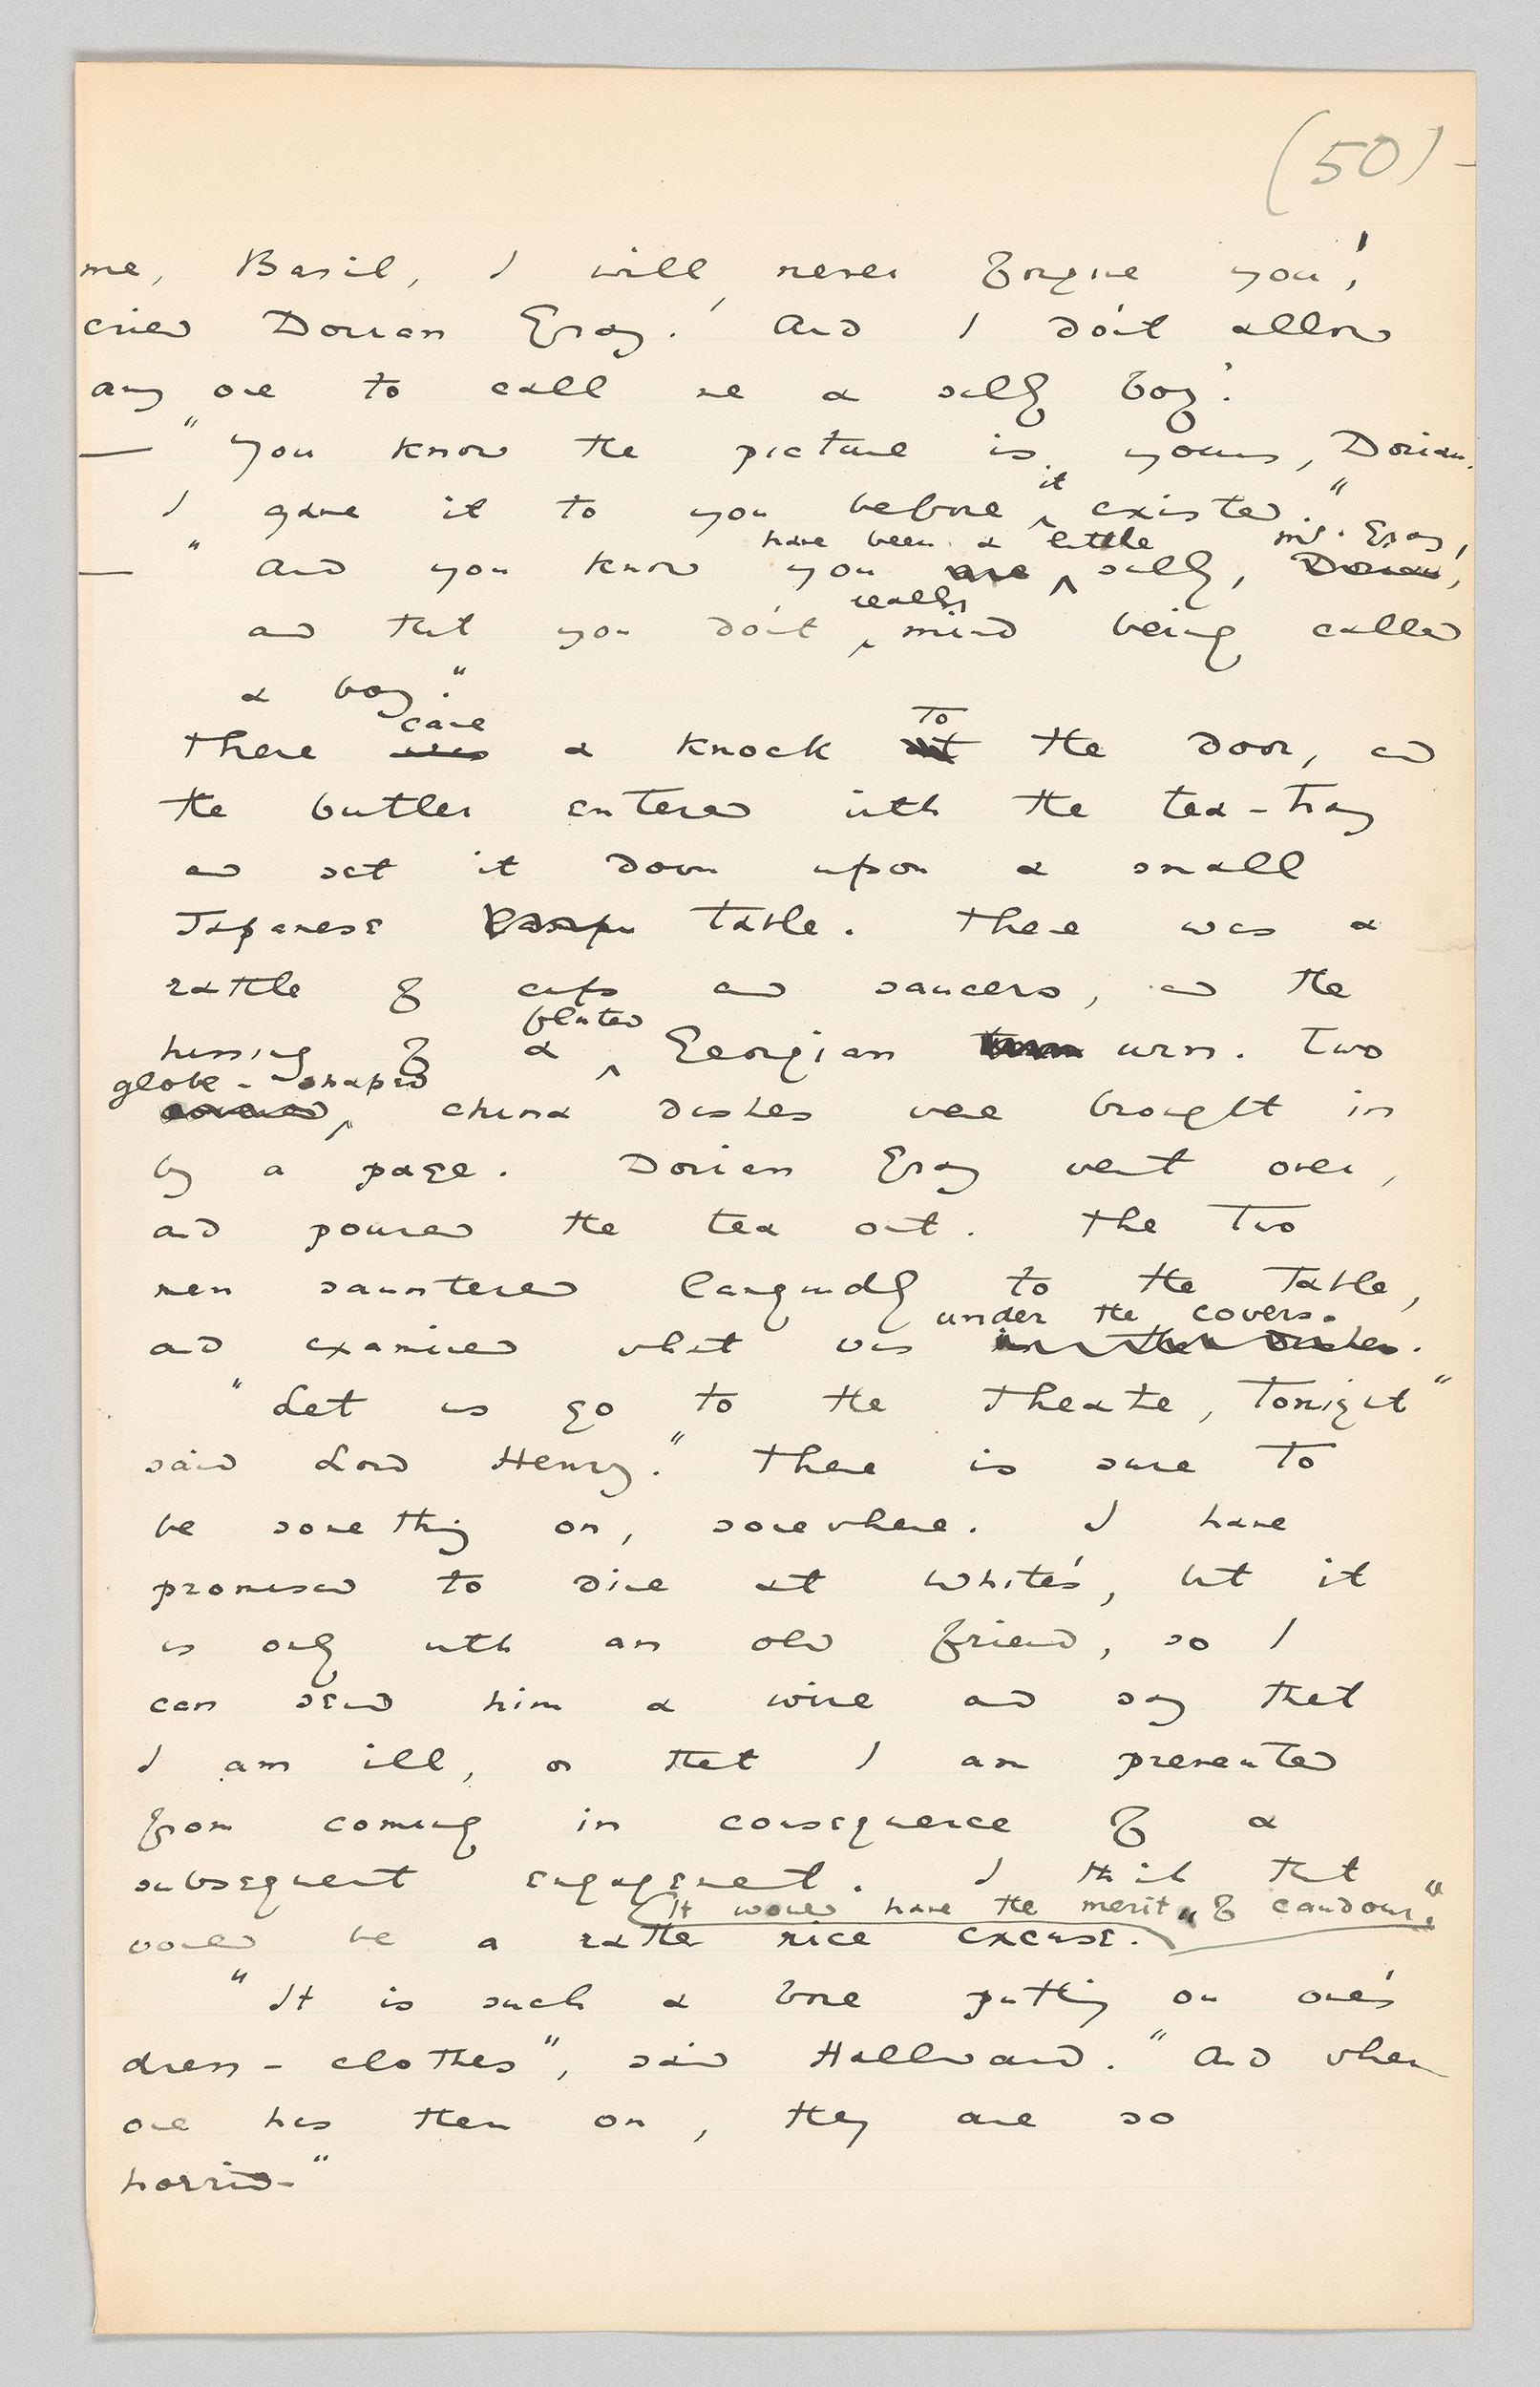 (50)-
me, Basil, I will never forgive you!'
cried Dorian Gray.' And I don't allow
any one to call me a silly boy.'
— "You know the picture is yours, Dorian.
it
I gave it to you before existed."
have been a little Mr. Gray,
— "And you know you are silly, Dorian,
really
and that you don't mind being called
a boy."
came To
There was a knock at the door, and
the butler entered with the tea-tray
and set it down upon a small
Japanese table. There was a
rattle of cups and saucers, and the
fluted
hissing of a Georgian urn. Two
globe-shaped
covered china dishes were brought in
by a page. Dorian Gray went over,
and poured the tea out. The two
men sauntered languidly to the table,
under the covers.
and examined what was in the dishes.
"Let us go to the Theatre, tonight"
said Lord Henry." There is sure to
be something on, somewhere. I have
promised to dine at White's, but it
is only with an old friend, so I
can send him a wire and say that
I am ill, or that I am prevented
from coming in consequence of a
subsequent engagement. I think that
It would have the merit of candour."
would be a rather nice excuse.
"It is such a bore putting on one's
dress-clothes", said Hallward. "And when
one has them on, they are so
horrid-"